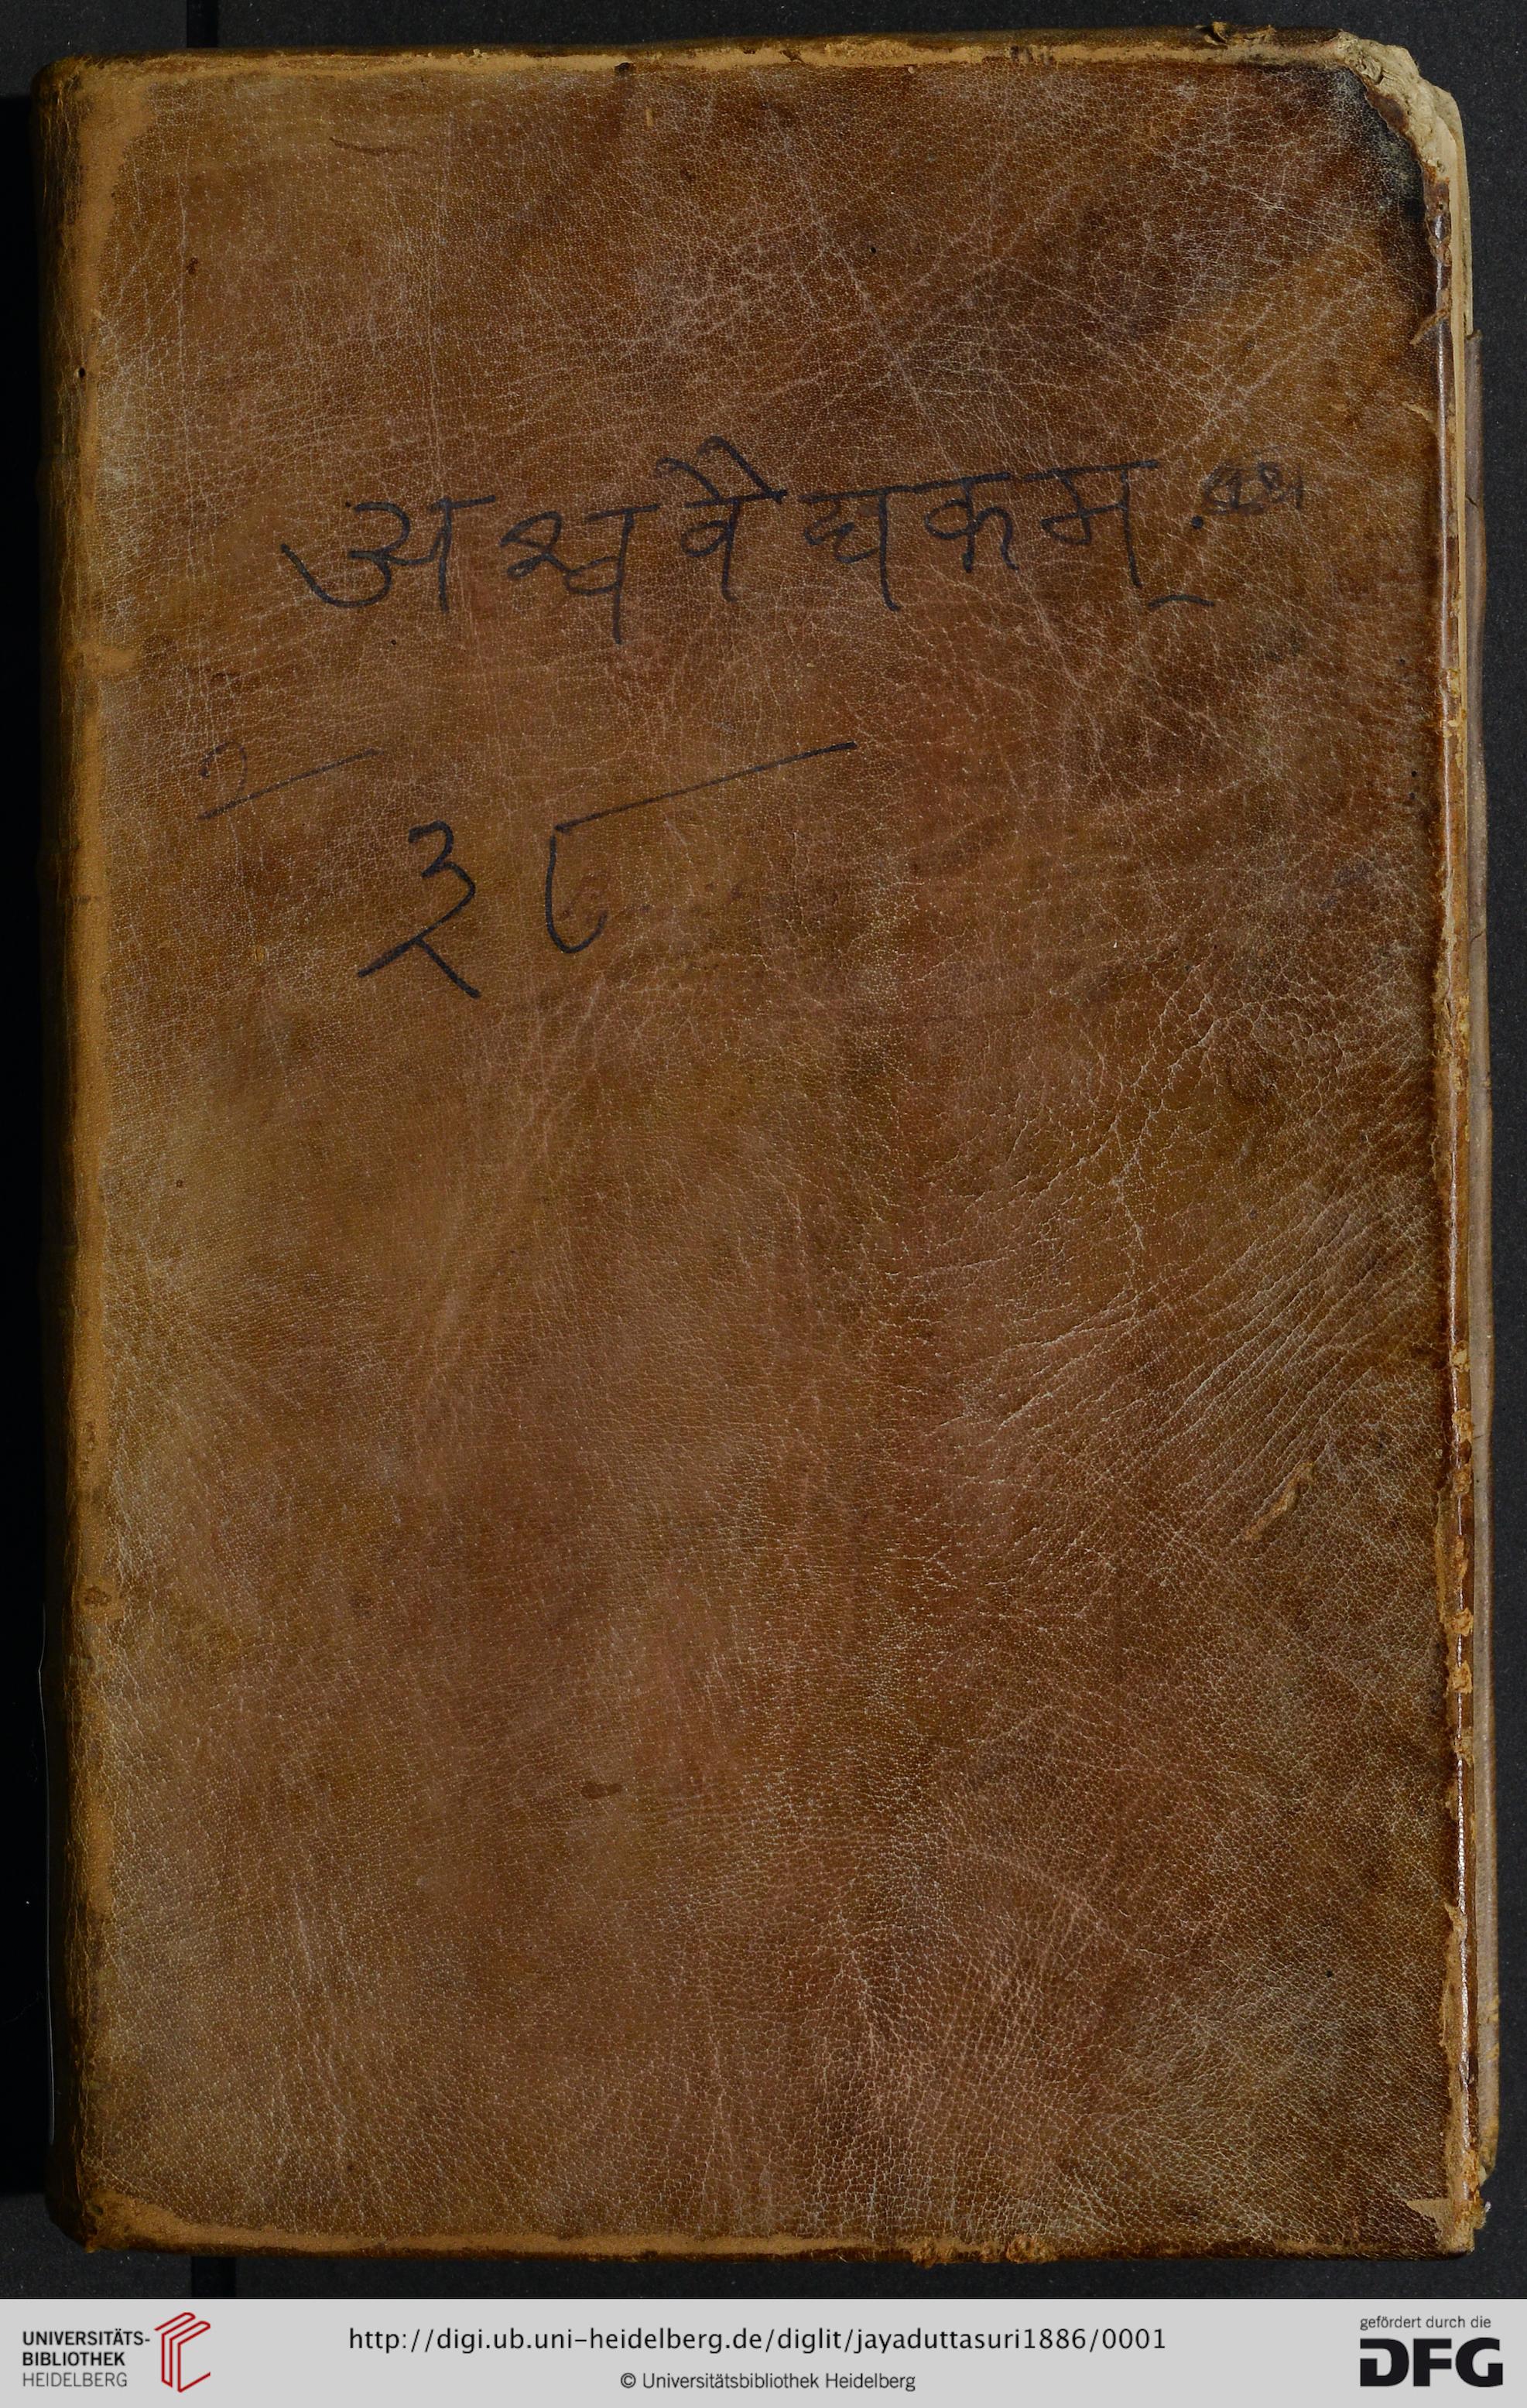 अश्ववैद्यकम्.
३८
UNIVERSITÄTS-
BIBLIOTHEK
HEIDELBERG
http://digi.ub.uni-heidelberg.de/diglit/jayaduttasuri1886/0001
© Universitätsbibliothek Heidelberg
gefördert durch die
DFG